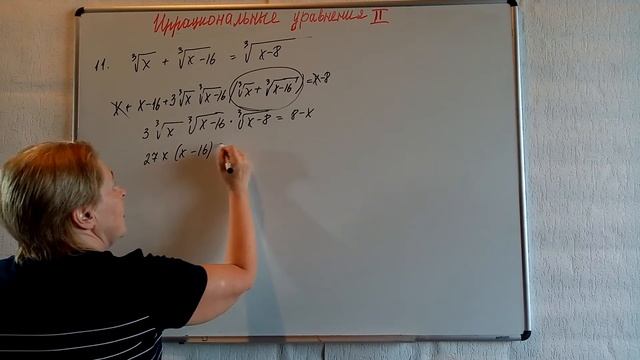 Иррациональные уравнения II
11. ∛x + ∛x-16 = ∛x-8
x + x-16 + 3∛x ∛x-16 (∛x + ∛x-16) = x-8
3 ∛x ∛x-16 · ∛x-8 = 8-x
27x (x-16)